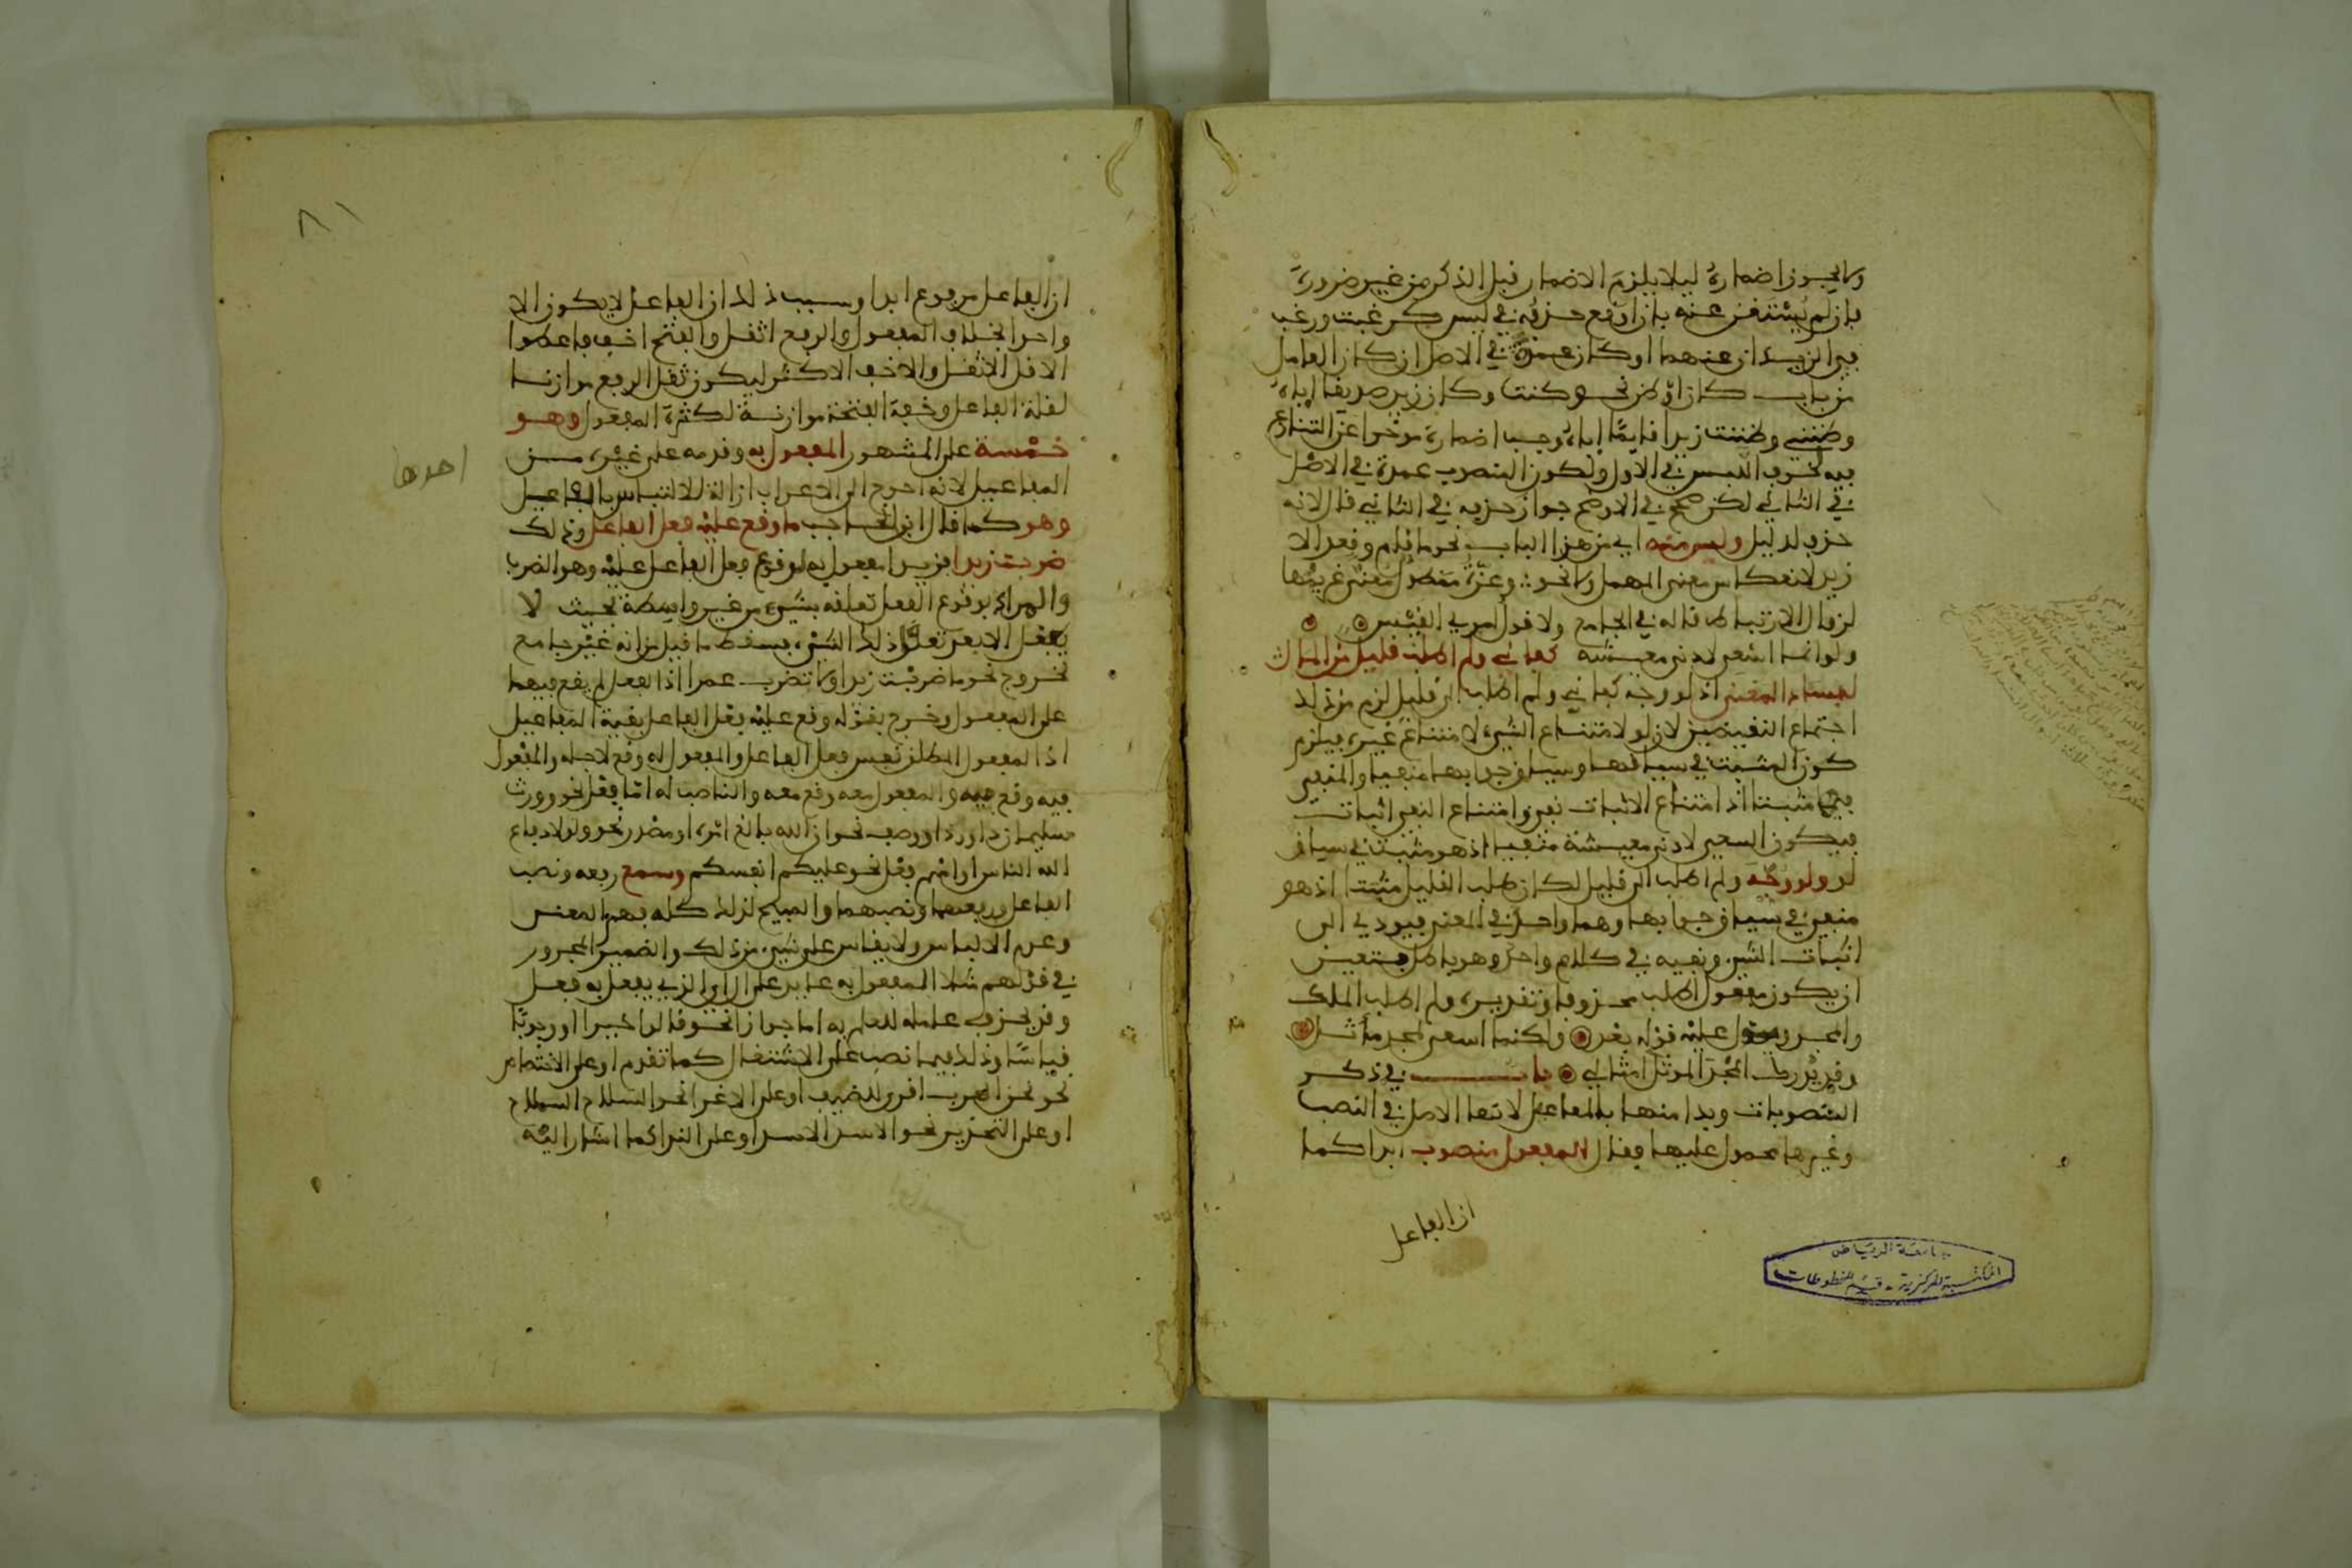 ولا يجوز اضماره ليلا يلزم الاضمار قبل الذكر من غير ضرورة
فان لم يستغن عنه بان اوقع حذفه في لبس كرغبت ورغب
في الزيدان عنهما او كان عمدة في الاصل ان كان العامل
من باب كان او ظن نحو كنت وكان زيد صديقا اياه
وظنني وظننت زيدا قايما اياه وجب اضماره موخرا عن التنازع
فيه لخوف اللبس في الاول ولكون المنصوب عمدة في الاصل
في الثاني لكن صحح في الاوضح جواز حذفه في الثاني قال لانه
حذف لدليل وليس منه اي من هذا الباب نحو ما قام وقعد الا
زيد لانعكاس معنى المهمل ولا نحو وعزة ممطول معنى غريمها
لزوال الارتباط قاله في الجامع ولا قول امرئ القيس
ولو انما اسعى لادنى معيشة كفاني ولم اطلب قليل من المال
لفساد المعنى اذ لو وجه كفاني ولم اطلب الى قليل لزم من ذلك
اجتماع النقيضين لان لو لامتناع الشيء لامتناع غيره فيلزم
كون المثبت في سياقها وسياق جوابها منفيا والمنفي
فيهما مثبتا اذ امتناع الاثبات نفي وامتناع النفي اثبات
فيكون السعي لادنى معيشة منفيا اذ هو مثبت في سياق
لو ولو وجه ولم اطلب الى قليل لكان طلب القليل مثبتا اذ هو
منفي في سياق جوابها وهما واحد في المعنى فيودي الى
اثبات الشيء ونفيه في كلام واحد وهو باطل فتعين
ان يكون مفعول اطلب محذوفا وتقديره ولم اطلب الملك
والمجد ويدل عليه قوله بعد ولكنما اسعى لمجد موثل
وقد يدرك المجد الموثل امثالي باب في ذكر
المنصوبات وبدا منها بالمفاعيل لانها الاصل في النصب
وغيرها محمول عليها فقال المفعول منصوب ابدا كما
ان الفاعل
جامعة الرياض
المكتبة المركزية - قسم المخطوطات
٨١
ان الفاعل مرفوع ابدا وسبب ذلك ان الفاعل لا يكون الا
واحدا بخلاف المفعول والرفع اثقل والفتح اخف فاعطوا
الاقل الاثقل والاخف الاكثر ليكون ثقل الرفع موازنا
لقلة الفاعل وخفة الفتحة موازنة لكثرة المفعول وهو
خمسة على المشهور المفعول به وقدمه على غيره من
احدها
المفاعيل لانه احوج الى الاعراب ازالة لالتباس بالفاعل
وهو كما قال ابن الحاجب ما وقع عليه فعل الفاعل وذلك
ضربت زيدا فزيدا مفعول به لوقوع فعل الفاعل عليه وهو الضرب
والمراد بوقوع الفعل تعلقه بشيء من غير واسطة بحيث لا
يعقل الا بعد تعقل ذلك الشيء فسقط ما قيل من انه غير جامع
لخروج نحو ما ضربت زيدا ولا تضرب عمرا اذ الفعل لم يقع فيهما
على المفعول وخرج بقوله وقع عليه فعل الفاعل بقية المفاعيل
اذ المفعول المطلق نفس فعل الفاعل والمفعول له وقع لاجله والمفعول
فيه وقع فيه والمفعول معه وقع معه والناصب له اما فعل نحو وورث
سليمان داود او وصف نحو ان الله بالغ امره او مصدر نحو ولولا دفاع
الله الناس او اسم فعل نحو عليكم انفسكم وسمع رفعه ونصب
الفاعل ورفعهما ونصبهما والمبيح لذلك كله فهم المعنى
وعدم الالباس ولا يقاس على شيء من ذلك والضمير المجرور
في قولهم مثلا المفعول به عايد على ال اي الذي يفعل به فعل
وقد يحذف عامله للعلم به اما جوازا نحو قالوا خيرا او وجوبا
قياسا وذلك فيما نصب على الاشتغال كما تقدم او على الاختصاص
نحو نحن العرب اقرى للضيف او على الاغراء نحو السلاح السلاح
او على التحذير نحو الاسد الاسد او على الندا كما اشار اليه